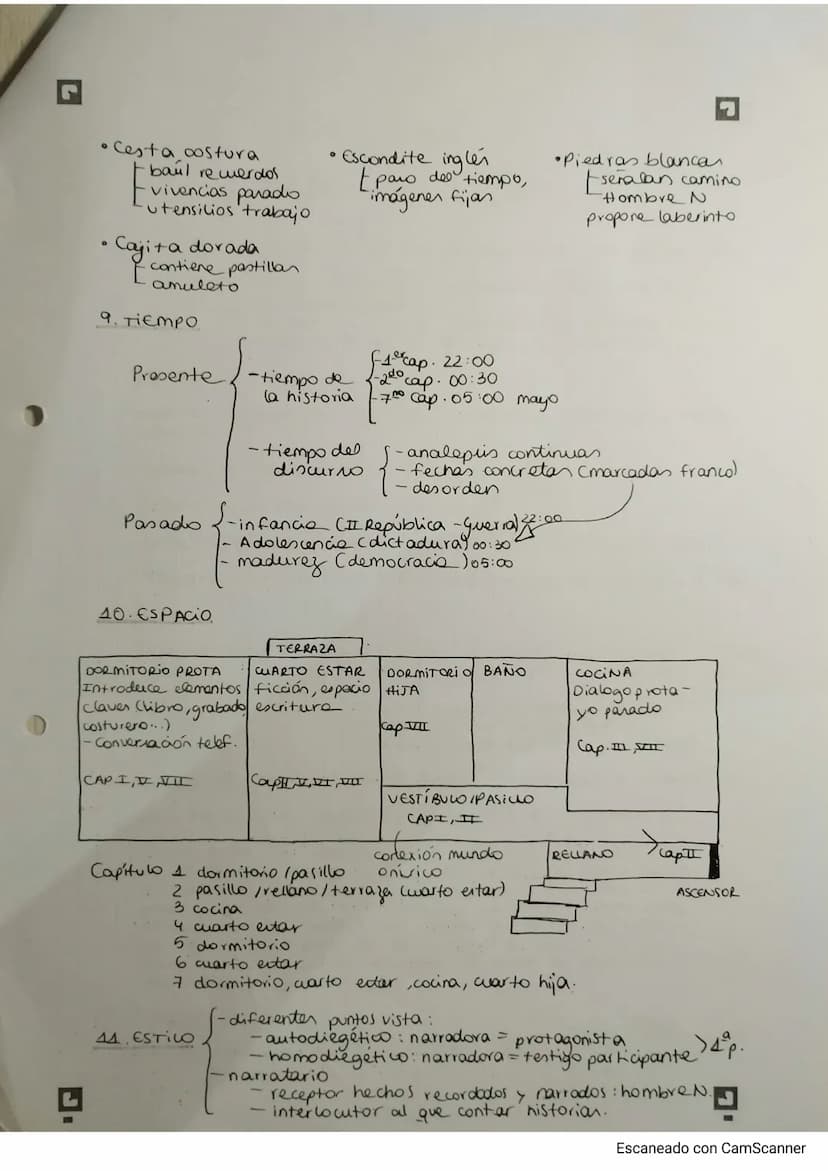 • Cesta costura
- baúl recuerdos
- vivencias pasado
- utensilios trabajo
• Escondite inglés
paso del tiempo,
imágenes fijas
• Piedras blancas
- señalan camino
- Hombre N
propone laberinto
• Cajita dorada
- contiene pastillas
- amuleto
9. TIEMPO
Presente
- tiempo de
la historia
- 1er cap. 22:00
- 2do cap. 00:30
- 7mo cap. 05:00 mayo
- tiempo del
discurso
- analepsis continuas
- fechas concretas (marcadas franco)
- desorden
Pasado
- infancia (II República - guerra) 22:00
- Adolescencia (dictadura) 00:30
- madurez (democracia) 05:00
10. ESPACIO
TERRAZA
DORMITORIO PROTA
Introduce elementos
claves (libro, grabado,
costurero...)
- Conversación telef.
CAP I, V, VII
CUARTO ESTAR
ficción, espacio
escritura
Cap II, V, VI, VII
DORMITORIO
HIJA
Cap VII
BAÑO
COCINA
Dialogo prota -
yo pasado
Cap. III, VII
VESTÍBULO/PASILLO
CAP I, II
conexión mundo
onírico
RELLANO
Cap II
ASCENSOR
Capítulo 1 dormitorio/pasillo
2 pasillo/rellano/terraza (cuarto estar)
3 cocina
4 cuarto estar
5 dormitorio
6 cuarto estar
7 dormitorio, cuarto estar, cocina, cuarto hija.
11. ESTILO
- diferentes puntos vista:
- autodiegético: narradora = protagonista
- homodiegético: narradora = testigo participante
1ª p.
- narratario
- receptor hechos recordados y narrados: hombre N.
- interlocutor al que contar historias.
Escaneado con CamScanner